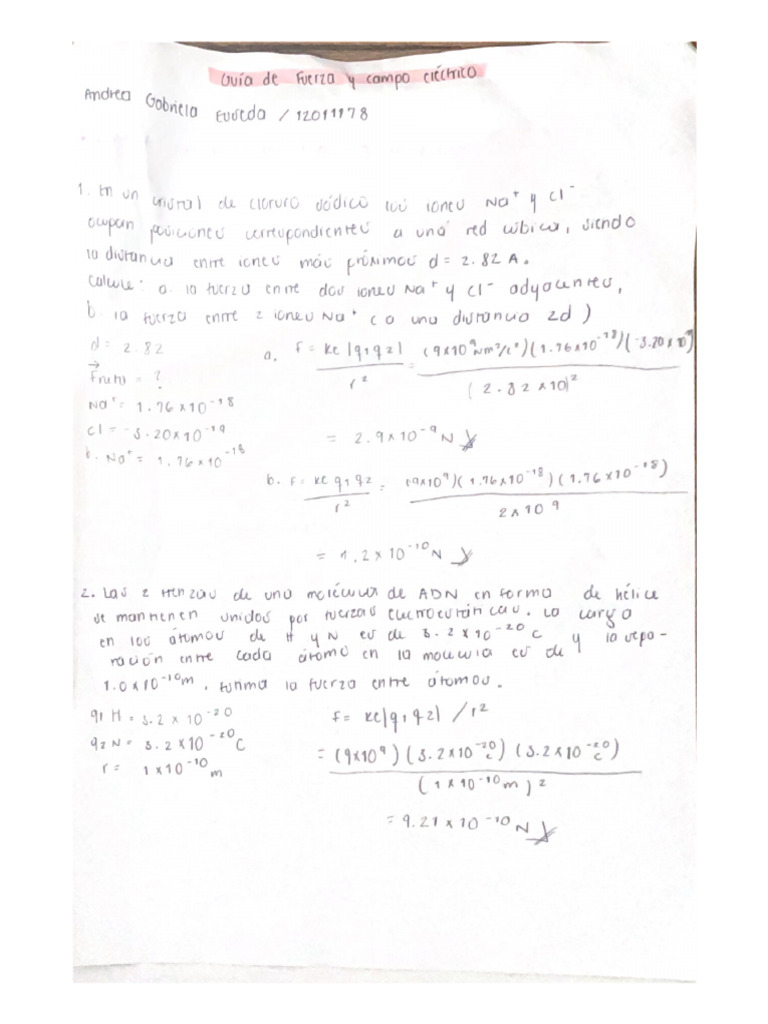 Guía de Fuerza y campo eléctrico
Andrea Gabriela / 12011178
1. En un cristal de cloruro sódico los iones Na⁺ y Cl⁻
ocupan posiciones correspondientes a una red cúbica, siendo
la distancia entre iones más próximos d = 2.82 A.
Calcule: a. la fuerza entre dos iones Na⁺ y Cl⁻ adyacentes,
b. la fuerza entre 2 iones Na⁺ (a una distancia 2d)
d = 2.82
= ?
Na⁺ = 1.76x10⁻¹⁸
Cl = -3.20x10⁻¹⁹
b. Na⁺ = 1.76x10⁻¹⁸
a. F = Ke |q1 q2| / r² = (9x10⁹ Nm²/C²)(1.76x10⁻¹⁸)(-3.20x10 / (2.82x10)²
= 2.9x10⁻⁹ N
b. F = Ke q1 q2 / r² = (9x10⁹)(1.76x10⁻¹⁸)(1.76x10⁻¹⁸) / 2x10⁹
= 1.2x10⁻¹⁰ N
2. Las 2 trenzas de una molécula de ADN en forma de hélice
se mantienen unidos por fuerzas electroestáticas. La carga
en los átomos de H y N es de 3.2x10⁻²⁰ C y la sepa-
ración entre cada átomo en la molécula es de
1.0x10⁻¹⁰ m. la fuerza entre átomos.
q1 H = 3.2x10⁻²⁰
q2 N = 3.2x10⁻²⁰ C
r = 1x10⁻¹⁰ m
F = Ke|q1 q2| / r²
= (9x10⁹)(3.2x10⁻²⁰ C)(3.2x10⁻²⁰ C) / (1x10⁻¹⁰ m)²
= 9.21x10⁻¹⁰ N